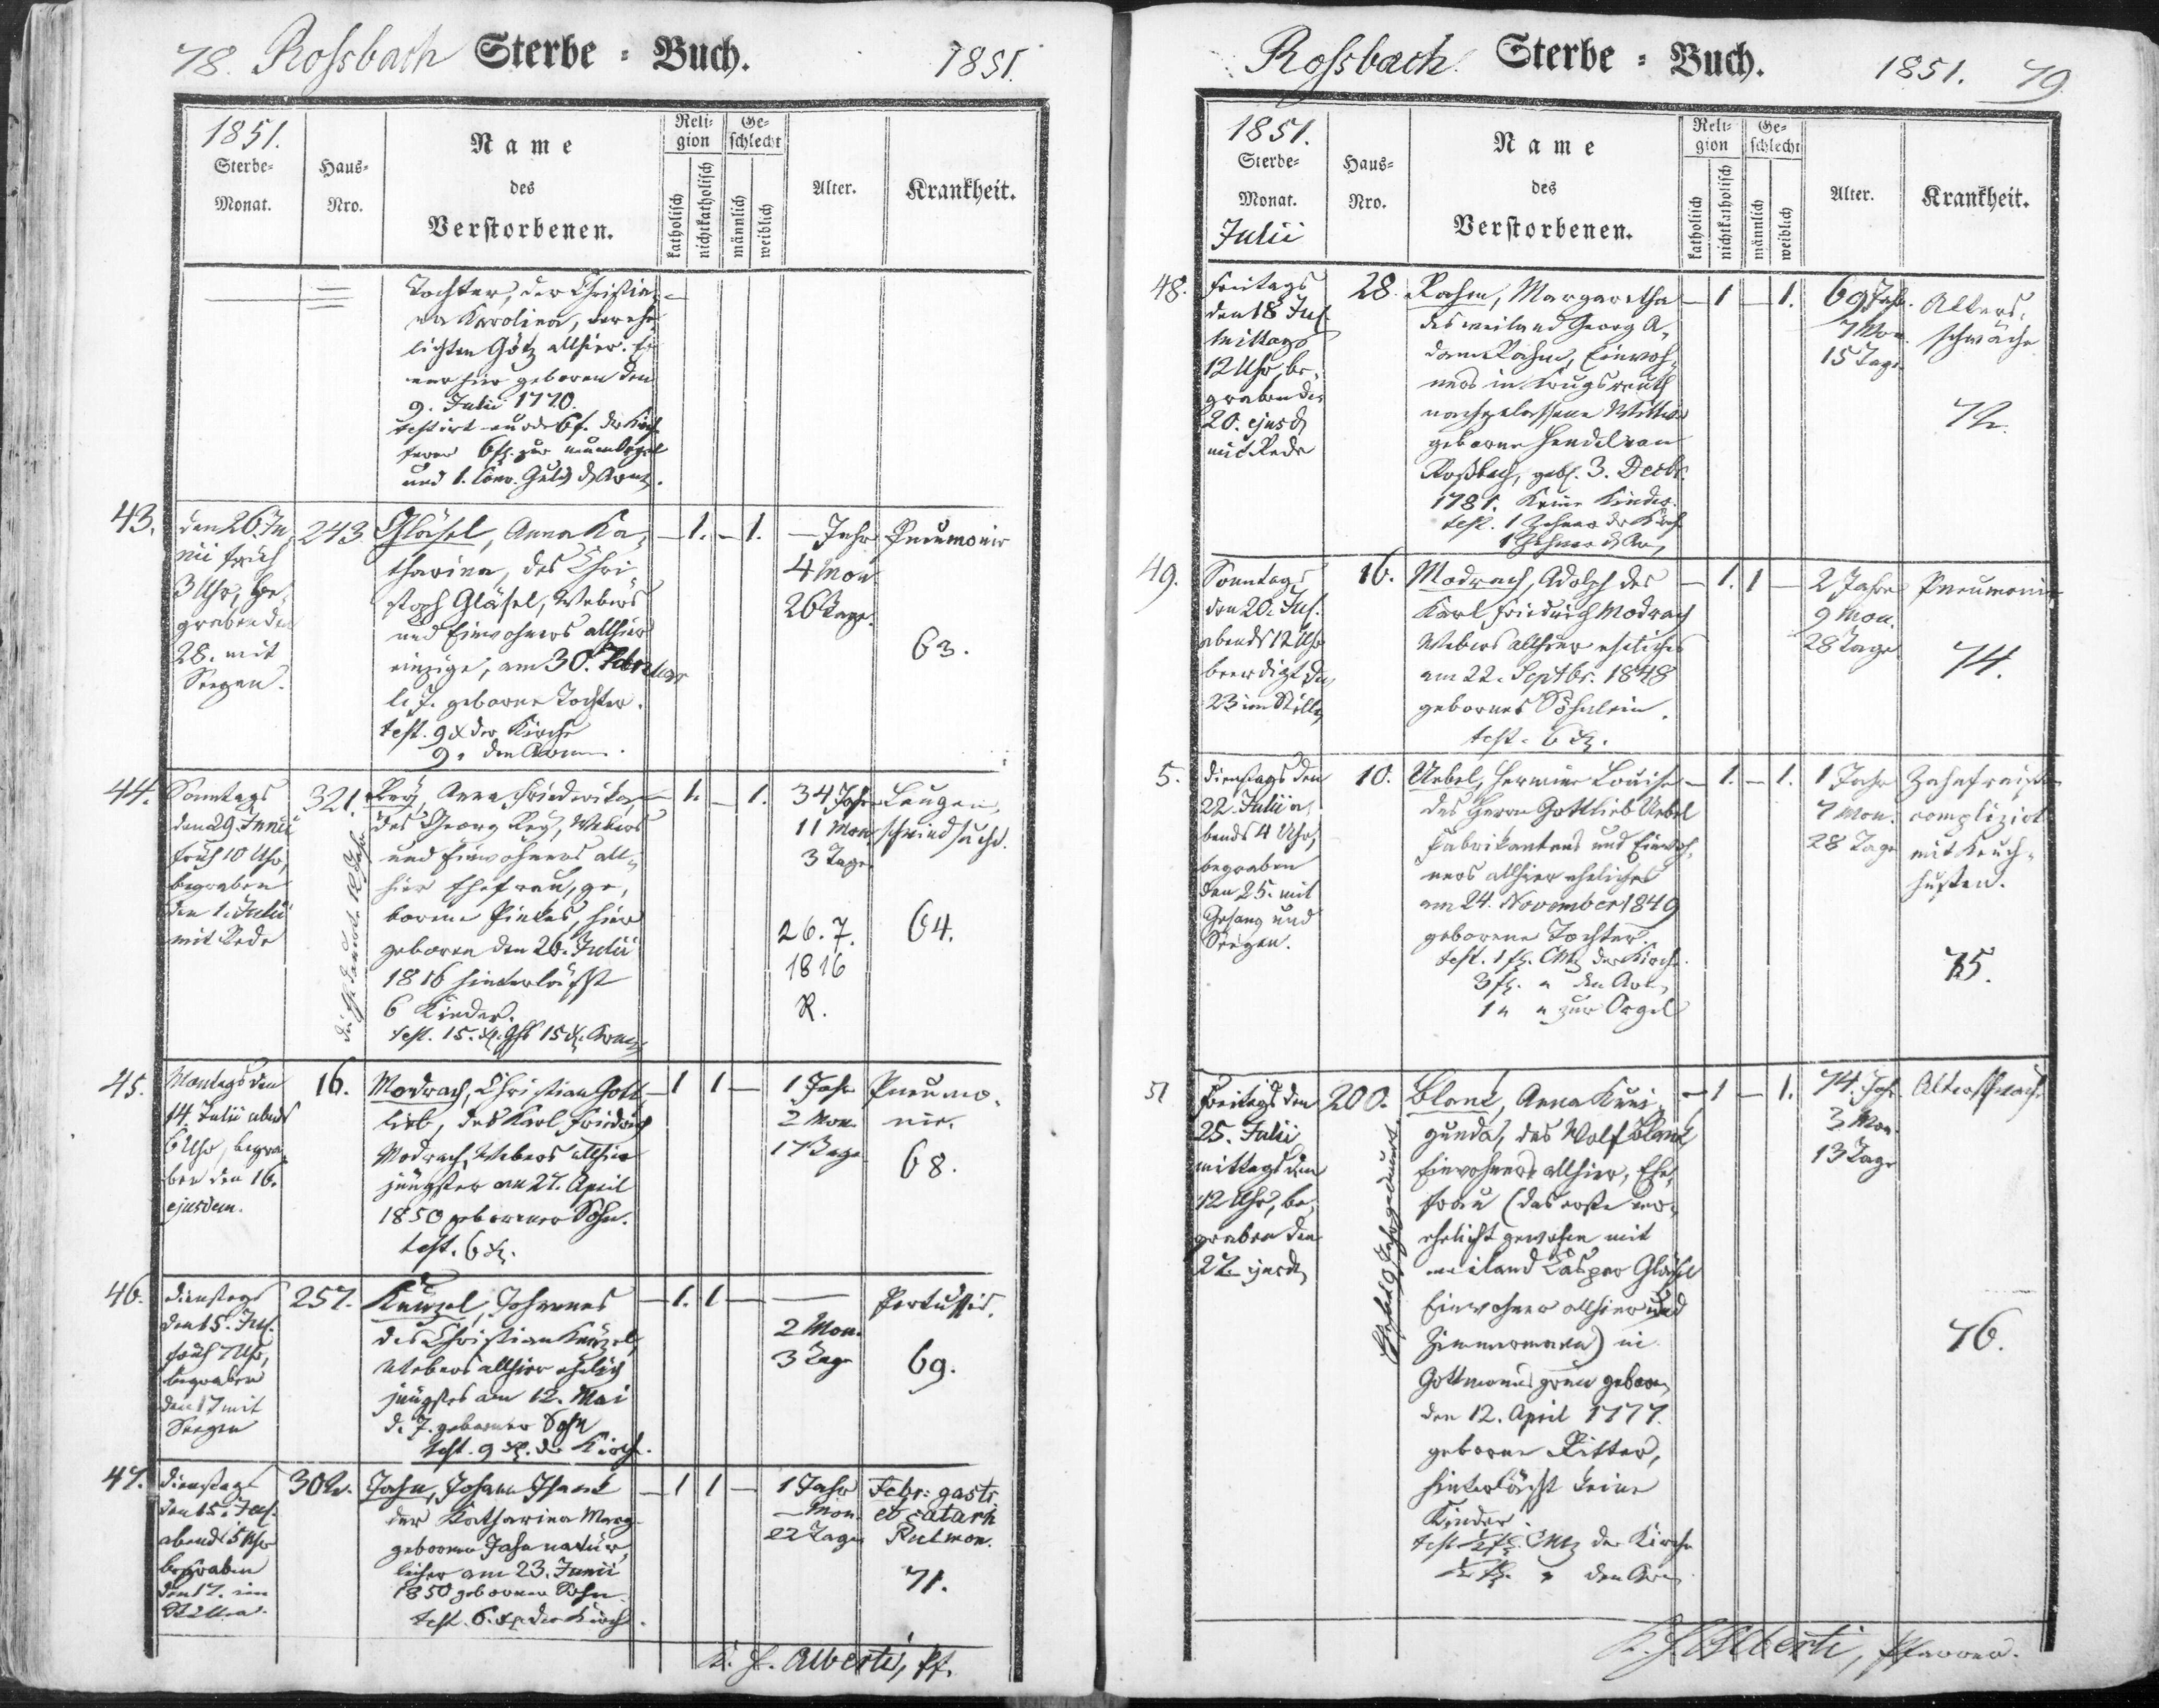 78. Rossbach Sterbe-Buch. 1851.
1851.
Sterbe-
Monat.
Haus-
Nro.
Name
des
Verstorbenen.
Reli-
gion
katholisch
nichtkatholisch
Ge-
schlecht
männlich
weiblich
Alter.
Krankheit.
Tochter, der Christia-
na Karolina, verehe-
lichten Götz allhier.
war hier geboren den
9. Julii 1770.
6 f. zur neuen Orgel
43.
den 26 Ju-
nii früh
3 Uhr, be-
graben den
28. mit
Seegen.
243
Gläsel, Anna Ka-
tharina, des Chri
stoph Gläsel, Webers
und Einwohners allhier
einzige, am 30.
l. J. geborne Tochter.
test. 9 x der Kirche
9 " den Armen.
– 1. – 1.
– Jahr
4 Mon
26 Tage.
Pneumonie
63.
44.
Sonntags
den 29. Junii
früh 10 Uhr,
begraben
den 1. Julii
mit Rede
321.
Anna Friederika,
des Georg Webers
und Einwohners all-
hier Ehefrau, ge-
borne hier
geboren den 26. Julii
1816 hinterläßt
6 Kinder.
– 1. – 1.
34 Jahr
11 Mon.
3 Tage
26. 7.
1816
R.
Lungen-
schwindsucht.
64.
45.
Montags den
14. Julii abends
6 Uhr, begra-
ben den 16.
ejusdem.
16.
Modrach, Christian Gott-
lieb, des Karl Friedrich
Modrach, Webers allhier
jüngster am 27. April
1850 geborner Sohn.
test. 6 x.
– 1 1 –
1 Jahr
2 Mon.
17 Tage
Pneumo-
nie.
68.
46.
Dienstags
den 15. Jul.
früh 7 Uhr,
begraben
den 17 mit
Seegen
257.
Künzel, Johannes
des Christian Künzel,
Webers allhier ehelich
jüngstes am 12. Mai
d. J. geborner Sohn
test. 9 x. der Kirche.
– 1. 1 –
2 Mon.
3 Tage
Pertussis.
69.
47.
Dienstags
den 15. Jul.
abends 5 Uhr
begraben
den 17. im
Stillen.
302.
Jahn, Johann
der Katharina Marg.
geborne Jahn natür-
licher am 23. Junii
1850 geborner Sohn
test. 6. x der Kirche.
– 1 1 –
1 Jahr
– Mon.
22 Tage
Febr: gastr
et catarh
Pulmon.
71.
Alberti, Pf.
Rossbach Sterbe-Buch. 1851. 79
1851.
Sterbe-
Monat.
Julii
Haus-
Nro.
Name
des
Verstorbenen.
Reli-
gion
katholisch
nichtkatholisch
Ge-
schlecht
männlich
weiblich
Alter.
Krankheit.
48.
Freitags
den 18 Jul.
Mittags
12 Uhr, be-
graben den
20. ejusd
mit Rede
28.
Rahm, Margaretha
des weiland Georg A-
dam Rahm, Einwoh-
ners in Krugsreuth
nachgelassene Wittwe
geborne Hendel von
Roßbach, geb. 3. Decbr.
1781. Keine Kinder.
– 1 – 1.
69 Jahr.
7 Mon.
15 Tage.
Alters-
schwäche
72.
49.
Sonntags
den 20. Jul.
abends 12 Uhr
beerdigt den
23 im Stillen
16.
Modrach, Adolph des
Karl Friedrich Modrach
Webers allhier eheliches
am 22. Septbr. 1848
gebornes Söhnlein.
test. 6 x.
– 1. 1 –
2 Jahre
9 Mon.
28 Tage
Pneumonie
74.
5.
Dienstags den
22. Julii a-
bends 4 Uhr,
begraben
den 25. mit
Gesang und
Seegen.
10.
Uebel, Hermine Louise
des Herrn Gottlieb Uebel
Fabrikantens und Einwoh-
ners allhier eheliches
am 24. November 1849
geborene Tochter.
test. 1 f. CMz der Kirche.
3 f. " den Arm.
1 " " zur Orgel
– 1. – 1.
1 Jahr
7 Mon.
28 Tage
complizirt
mit Keuch-
husten.
75.
51
Freitags den
25. Julii
mittags um
12 Uhr, be-
graben den
27. ejusd
200.
Blank, Anna Kuni-
gunda, des Wolf Blank
Einwohners allhier, Ehe-
frau (das erste ver-
ehelicht gewesen mit
weiland Caspar Gläsel
Einwohner allhier und
Zimmermann) in
Gottmannsgrün geboren
den 12. April 1777.
geborne Ritter,
hinterläßt keine
Kinder.
– 1 – 1.
74. Jahr
3 Mon.
13 Tage
Altersschwäche
76.
Alberti, Pfarrer.